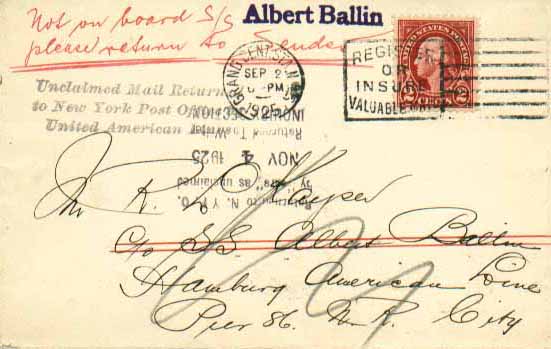 Not on board S/S Albert Ballin
please return to Sender
Unclaimed Mail Return
to New York Post Office
United American
GRAND CENT. STA. N.Y.
SEP 2
PM
1925
REGISTER
OR
INSURE
VALUABLE
UNITED STATES POSTAGE
2 CENTS 2
INQUIRY SECTION
NOV 4 1925
Returned to N. Y. P. O.
by as unclaimed
Mr R.
c/o S.S. Albert Ballin
Hamburg American Line
Pier 86. N. R. City